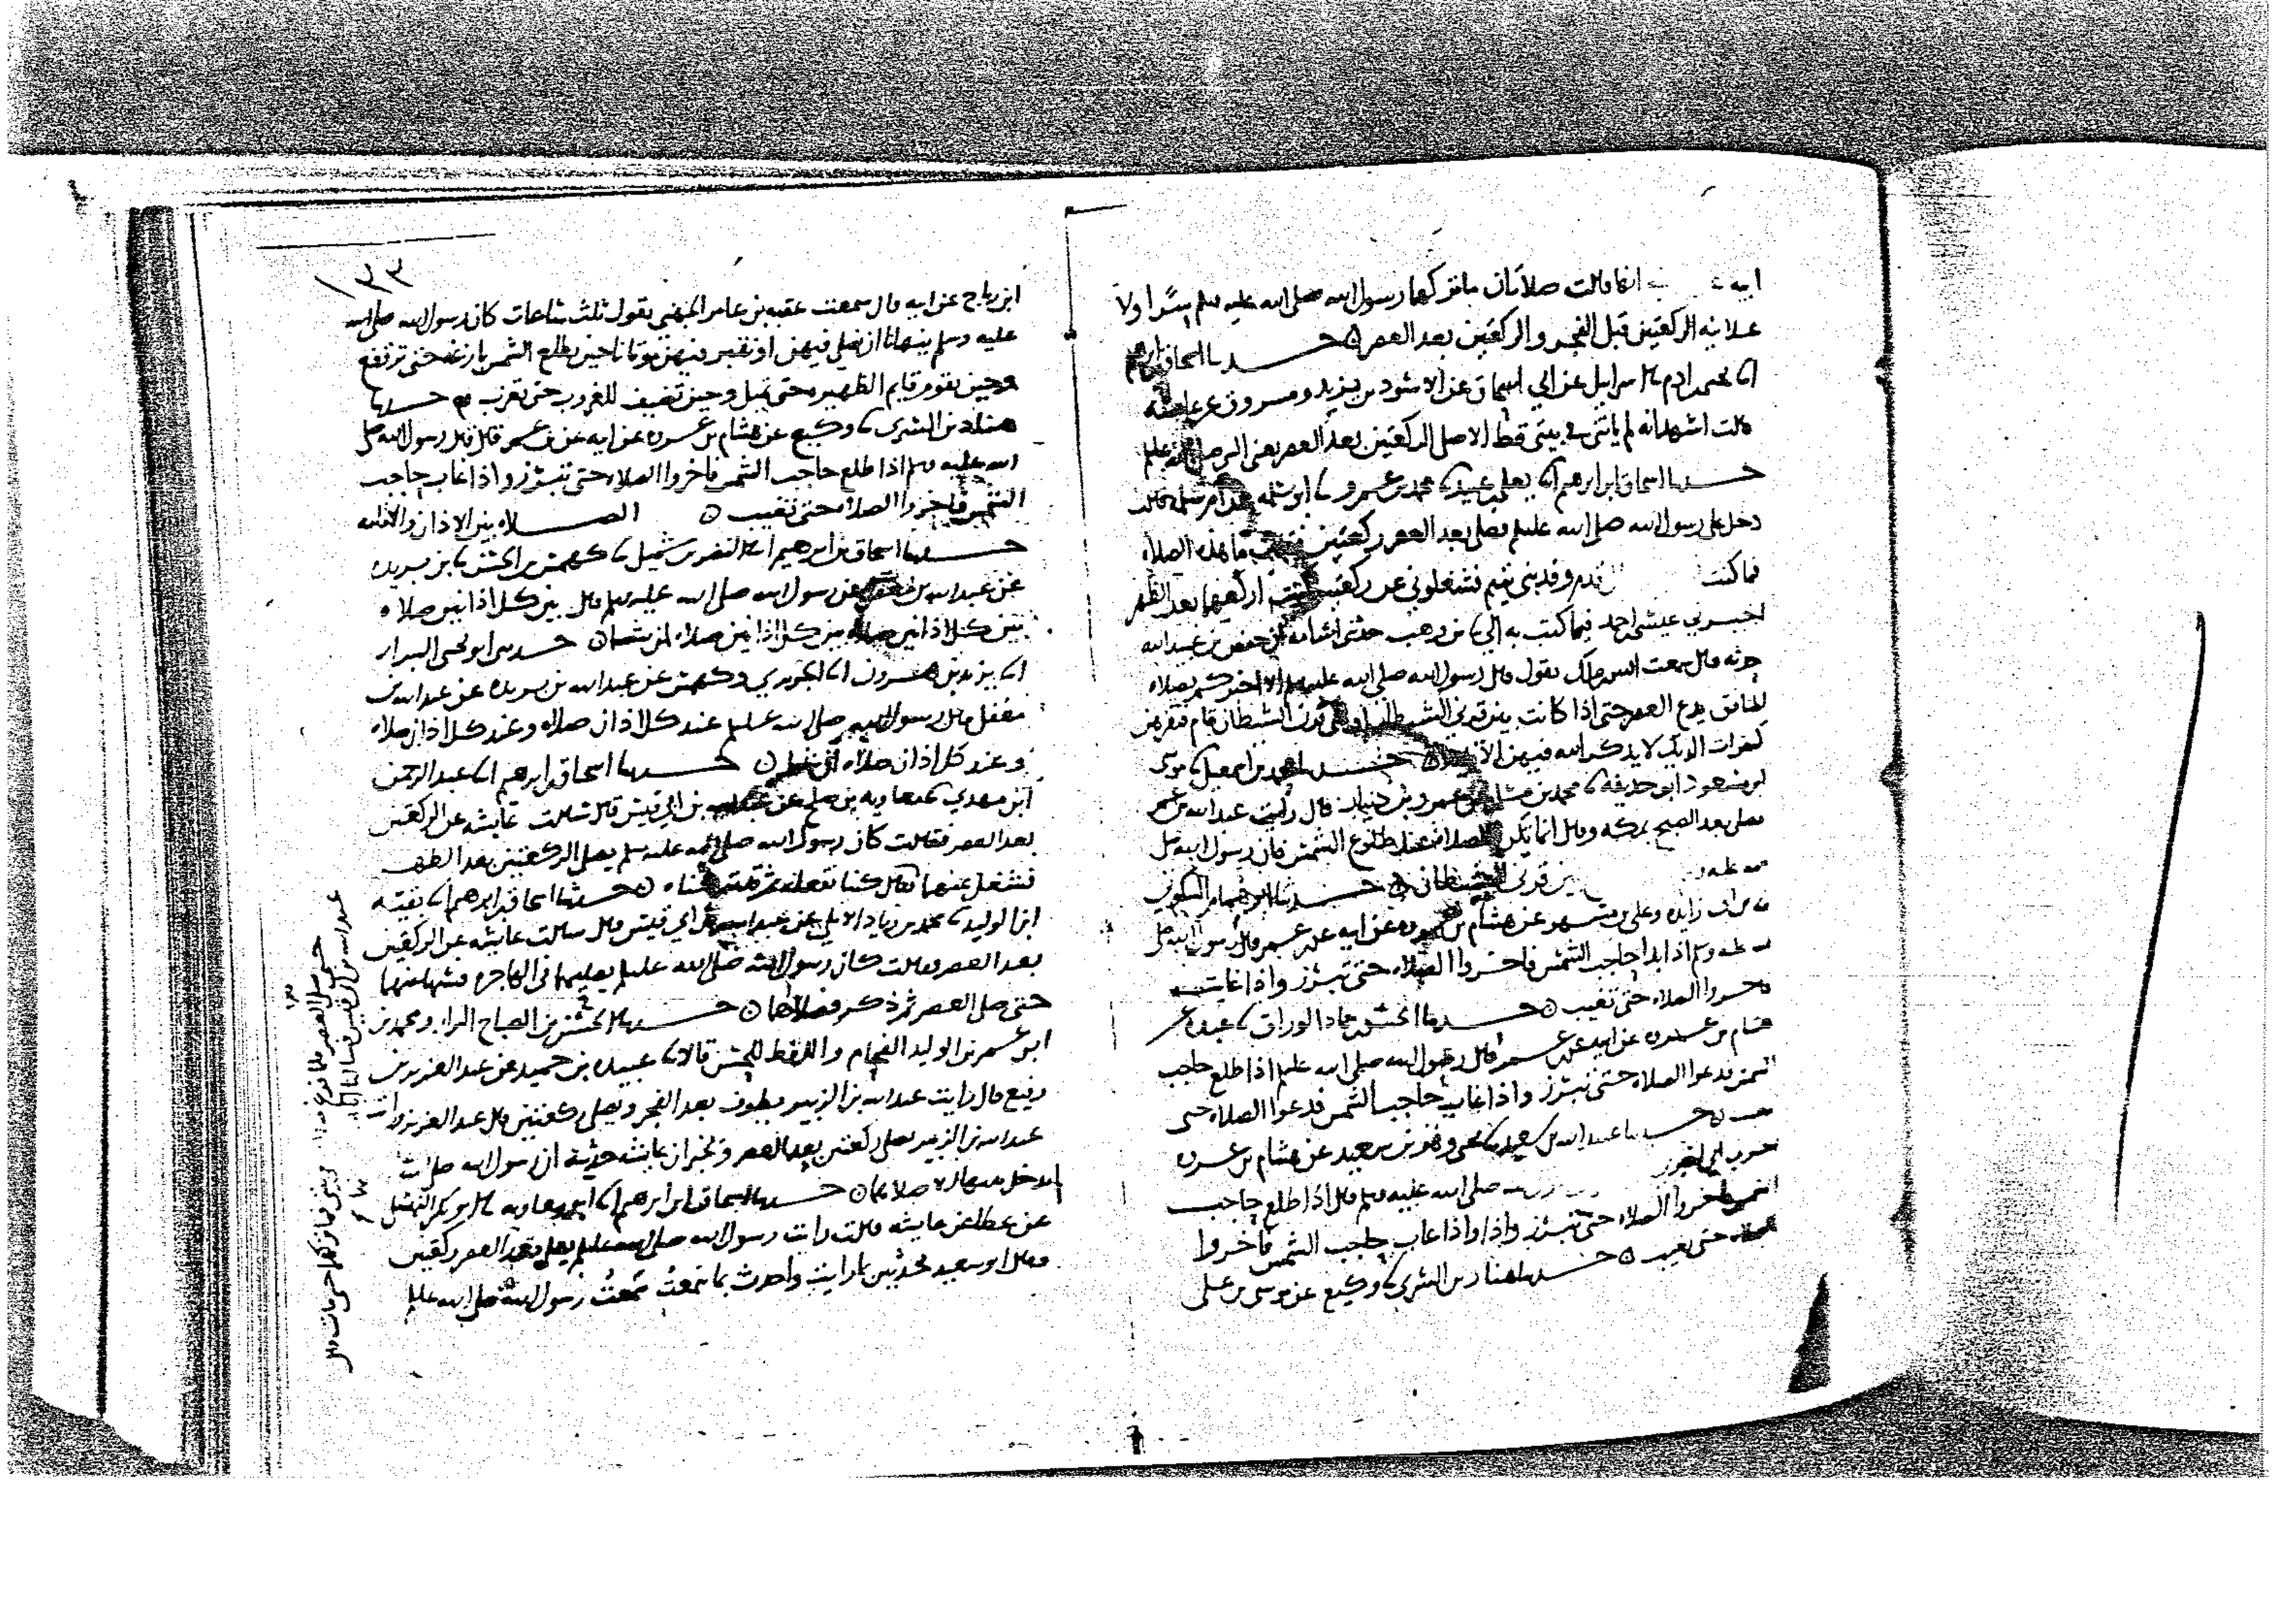 انها قالت صلاتان ما تركهما رسول الله صلى الله عليه وسلم سرا ولا
علانيه الركعتين قبل الفجر والركعتين بعد العصر حدثنا اسحاق بن ابرهيم
يحيى بن ادم اسرايل عن ابي اسحاق عن الاسود بن يزيد ومسروق عن عايشه
قالت اشهد انه لم ياتني في بيتي قط الا صلى الركعتين بعد العصر يعني النبي صلى الله عليه
حدثنا اسحاق ابن ابرهيم يعلى بن عبيد محمد بن عمرو ابو سلمه عن ام سلمه قالت
دخل علي رسول الله صلى الله عليه وسلم يصلي بعد العصر ركعتين فقلت ما هذه الصلاه
فما كنت قدم وفد بني تميم فشغلوني عن ركعتين كنت اركعهما بعد الظهر
اخبرني عيسى بن احمد فيما كتب به الي بن وهب حدثني اسامه ان حفص بن عبيد الله
حدثه قال سمعت انس بن مالك يقول قال رسول الله صلى الله عليه وسلم الا اخبركم بصلاه
المنافق يدع العصر حتى اذا كانت بين قرني الشيطان او على قرن الشيطان قام فنقرهن
كنقرات الديك لا يذكر الله فيهن الا قليلا حدثنا احمد بن اسمعيل موسى
بن مسعود ابو حذيفه محمد بن مسلم عن عمرو بن دينار قال رايت عبد الله بن عمر
يصلي بعد الصبح بمكه وقال انما تكره الصلاه عند طلوع الشمس فان رسول الله صلى
بين قرني الشيطان حدثنا ابو همام السكوني
زايده وعلي بن مسهر عن هشام بن عروه عن ابيه عن بن عمر قال رسول الله صلى
الله عليه وسلم اذا بدا حاجب الشمس فاخروا الصلاه حتى تبرز واذا غابت
فاخروا الصلاه حتى تغيب حدثنا الحسن بن حماد الوراق عبده عن
هشام بن عروه عن ابيه عن بن عمر قال رسول الله صلى الله عليه اذا طلع حاجب
الشمس فدعوا الصلاه حتى تبرز واذا غاب حاجب الشمس فدعوا الصلاه حتى
حدثنا عبيد الله بن سعيد يحيى وهو بن سعيد عن هشام بن عروه
صلى الله عليه وسلم قال اذا طلع حاجب
الشمس فاخروا الصلاه حتى تبرز واذا واذا غاب حاجب الشمس فاخروا
الصلاه حتى تغيب حدثنا هناد بن السري وكيع عن موسى بن علي
١٣٣
ابن رباح عن ابيه قال سمعت عقبه بن عامر الجهني يقول ثلث ساعات كان رسول الله صلى الله
عليه وسلم ينهانا ان نصلي فيهن او نقبر فيهن موتانا حين تطلع الشمس بازغه حتى ترتفع
وحين يقوم قايم الظهيره حتى تميل وحين تضيف للغروب حتى تغرب حدثنا
هناد بن السري وكيع عن هشام بن عروه عن ابيه عن بن عمر قال قال رسول الله صلى
الله عليه وسلم اذا طلع حاجب الشمس فاخروا الصلاه حتى تبرز واذا غاب حاجب
الشمس فاخروا الصلاه حتى تغيب الصلاه بين الاذان والاقامه
حدثنا اسحاق بن ابرهيم النضر بن شميل كهمس بن الحسن ابن بريده
عن عبد الله بن مغفل عن رسول الله صلى الله عليه وسلم قال بين كل اذانين صلاه
بين كل اذانين صلاه بين كل اذانين صلاه لمن شا حدثني ابو يحيى البزار
يزيد بن هرون الجريري وكهمس عن عبد الله بن بريده عن عبد الله بن
مغفل قال رسول الله صلى الله عليه عند كل اذان صلاه وعند كل اذان صلاه
وعند كل اذان صلاه لمن شا حدثنا اسحاق بن ابرهيم عبد الرحمن
ابن مهدي معاويه بن صالح عن عبد الله بن ابي قيس قال سالت عايشه عن الركعتين
بعد العصر فقالت كان رسول الله صلى الله عليه وسلم يصلي الركعتين بعد الظهر
فشغل عنهما حدثنا اسحاق بن ابرهيم بقيه
ابن الوليد محمد بن زياد الالهاني عن عبد الله بن ابي قيس قال سالت عايشه عن الركعتين
بعد العصر فقالت كان رسول الله صلى الله عليه يصليهما في الهاجره فشغل عنهما
حتى صلى العصر ثم ذكر فصلاهما حدثنا الحسن بن الصباح البزار ومحمد بن
ابو عمر بن الوليد الفحام واللفظ للحسن قالا عبيده بن حميد عن عبد العزيز بن
رفيع قال رايت عبد الله بن الزبير يطوف بعد الفجر ويصلي ركعتين قال عبد العزيز ورايت
عبد الله بن الزبير يصلي ركعتين بعد العصر ويخبر ان عايشه حدثته ان رسول الله صلى الله
لم يدخل بيتها الا صلاهما حدثنا اسحاق ابن ابرهيم ابو معاويه ابو بكر النهشلي
عن عطا عن عايشه قالت رايت رسول الله صلى الله عليه يصلي بعد العصر ركعتين
وقال ابو سعيد تحدثين بما رايت واحدث بما سمعت سمعت رسول الله صلى الله عليه